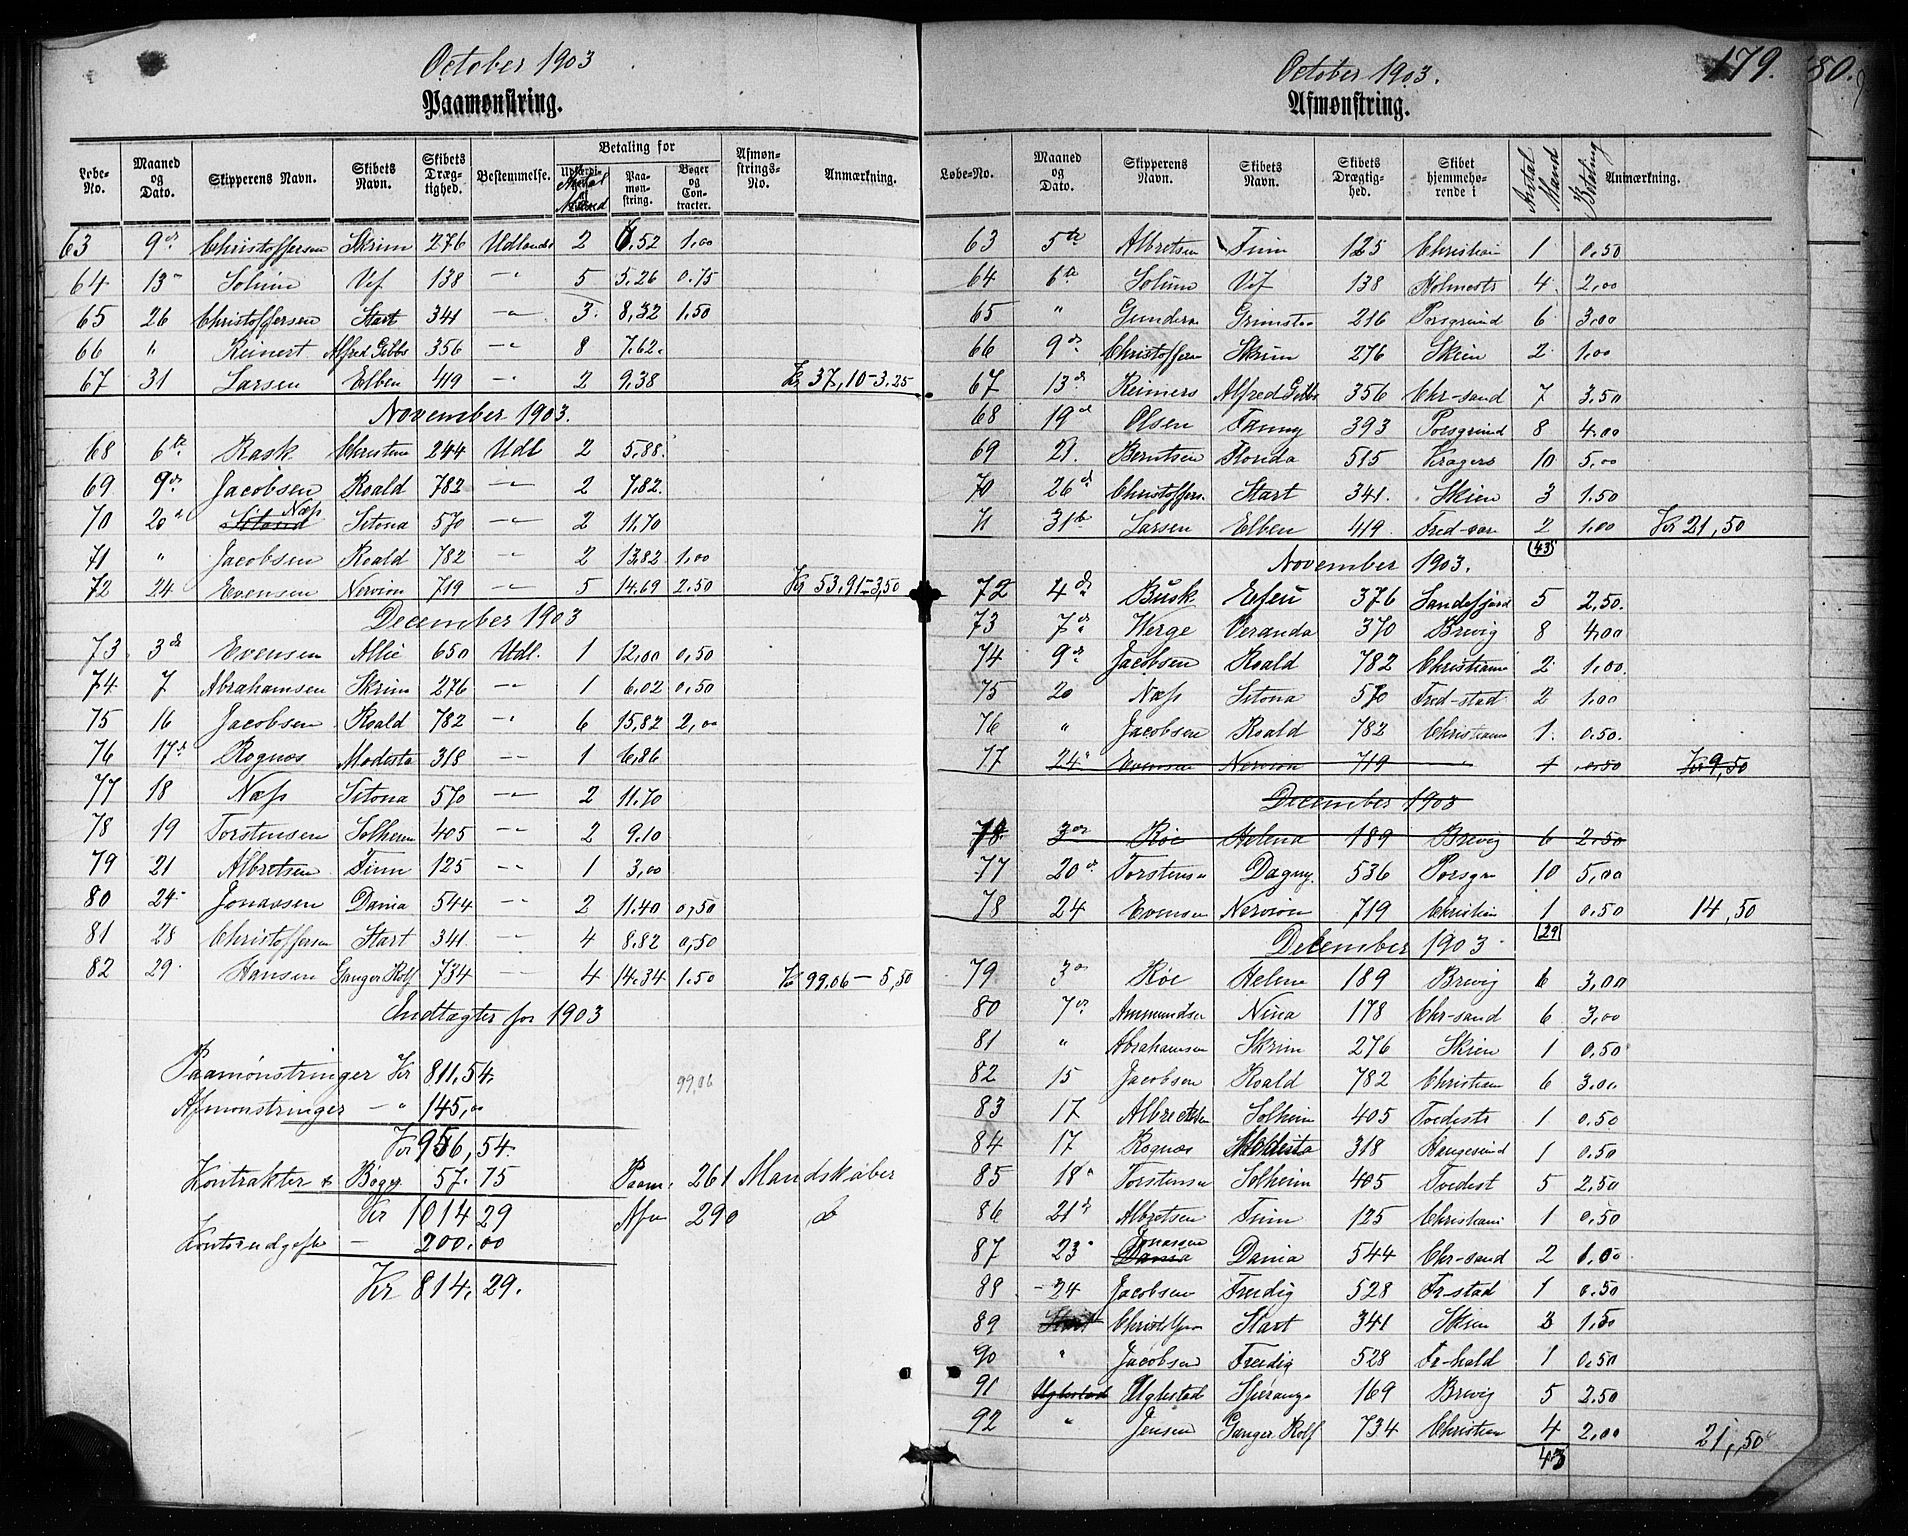 October 1903
Paamønstring.
Løbe-No. Maaned og Dato. Skipperens Navn. Skibets Navn. Skibets Drægtighed. Bestemmelse. Betaling for Antal Mand Paamønstring. Bøger og Contracter. Afmønstrings-No. Anmærkning.
63 9de Christoffersen Skrim 276 Udlandet 2 6,52 1,00
64 13 Solum Vif 138 -"- 5 5.26 0.75
65 26 Christoffersen Start 341 -"- 3. 8,32 1,50
66 " Reinert Alfred Gibbs 356 -"- 8 7.62.
67 31 Larsen Elben 419 -"- 2 9,38 Kr 37,10-3,25
November 1903.
68 6te Rask Christine 244 Udl 2 5,88.
69 9de Jacobsen Roald 782 -"- 2 7,82.
70 20 Næss Sitona 570 -"- 2 11.70
71 " Jacobsen Roald 782 -"- 2 13,82 1,00
72 24 Evensen Nervion 719 -"- 5 14.69 2,50 Kr 53,91-3,50
December 1903
73 3de Evensen Allie 650 Udl. 1 12,00 0,50
74 7 Abrahamsen Skrim 276 -"- 1 6,02 0,50
75 16 Jacobsen Roald 782 -"- 6 15,82 2,00
76 17de Rognos Modesta 318 -"- 1 6,86
77 18 Næss Sitona 570 -"- 2 11.70
78 19 Torstensen Solheim 405 -"- 2 9.10
79 21 Albretsen Finn 125 -"- 1 3,00
80 24 Jonassen Dania 544 -"- 2 11.40 0,50
81 28 Christoffersen Start 341 -"- 4 8.82 0,50
82 29 Hansen Ganger Rolf 734 -"- 4 14.34 1.50 Kr 99,06 - 5,50
Indtægter for 1903
Paamønstringer Kr 811,54.
99,06
Afmønstringer - " 145,00
Kr 956,54.
Kontrakter & Bøger 57.75 Paam. 261 Mandskaber
Kr 1014 29 Afm 290 do
Kontorudgifter - 200.00
Kr 814,29.
179.
October 1903.
Afmønstring.
Løbe-No. Maaned og Dato. Skipperens Navn. Skibets Navn. Skibets Drægtighed. Skibet hjemmehørende i Antal Mand Betaling Anmærkning.
63 5te Albretsen Finn 125 Christiania 1 0.50
64 6te Solum Vif 138 Holmestr 4. 2,00
65 " Gunderse Grimstad 216 Porsgrund 6 3,00
66 9de Christoffersen Skrim 276 Skien 2 1,00
67 13de Reiners Alfred Gibbs 356 Chr-sand 7 3.50
68 19de Olsen Fanny 393 Porsgrund 8 4.00
69 21. Berntsen Florida 515 Kragerø 10 5,00
70 26de Christoffers. Start 341. Skien 3 1.50
71 31te Larsen Elben 419 Fred-vær 2 1,00 Kr 21,50
43
November 1903.
72 4de Busk Efeu 376 Sandefjord 5 2,50.
73 7de Werge Veranda 370 Brevig 8 4,00
74 9de Jacobsen Roald 782 Christiania 2 1,00
75 20 Næss Sitona 570 Fred-stad 2 1,00
76 " Jacobsen Roald 782 Christiania 1 0.50.
77 24 Evensen Nervion 719 " 1 0,50 Kr 9,50
December 1903
78 3de Roe Helena 189 Brevig 6 2,50
77 20de Torstense Dagny. 536 Porsgru 10 5,00
78 24 Evensen Nervion 719 Christian 1 0.50 14,50
29
December 1903
79 3de Roe Helene 189 Brevig 6 3,00
80 7de Ammundsen Nina 178 Chr-sand 6 3,00
81 " Abrahamsen Skrim 276 Skien 1 0.50
82 15 Jacobsen Roald 782 Christiania 6 3.00
83 17 Albrectsen Solheim 405 Tvedestr 1 0.50
84 17 Rognos Modesta 318 Haugesund 1 0.50
85 18 Torstensen Solheim 405 Tvedest 5 2,50
86 21de Albretsen Finn 125 Christiani 1 0.50
87 23 Jonassen Dania 544 Chr-sand 2 1.00
88 -24 Jacobsen Freidig 528 Fr-stad 1 0.50
89 Start 341 Skien 3 1,50
90 " Jacobsen Freidig 528 Fr-hald 1 0.50
91 Uglestad 169 Brevig 5 2.50
92 " Jensen Ganger Rolf 734 Christian 4 2,00 21,50
43
80.